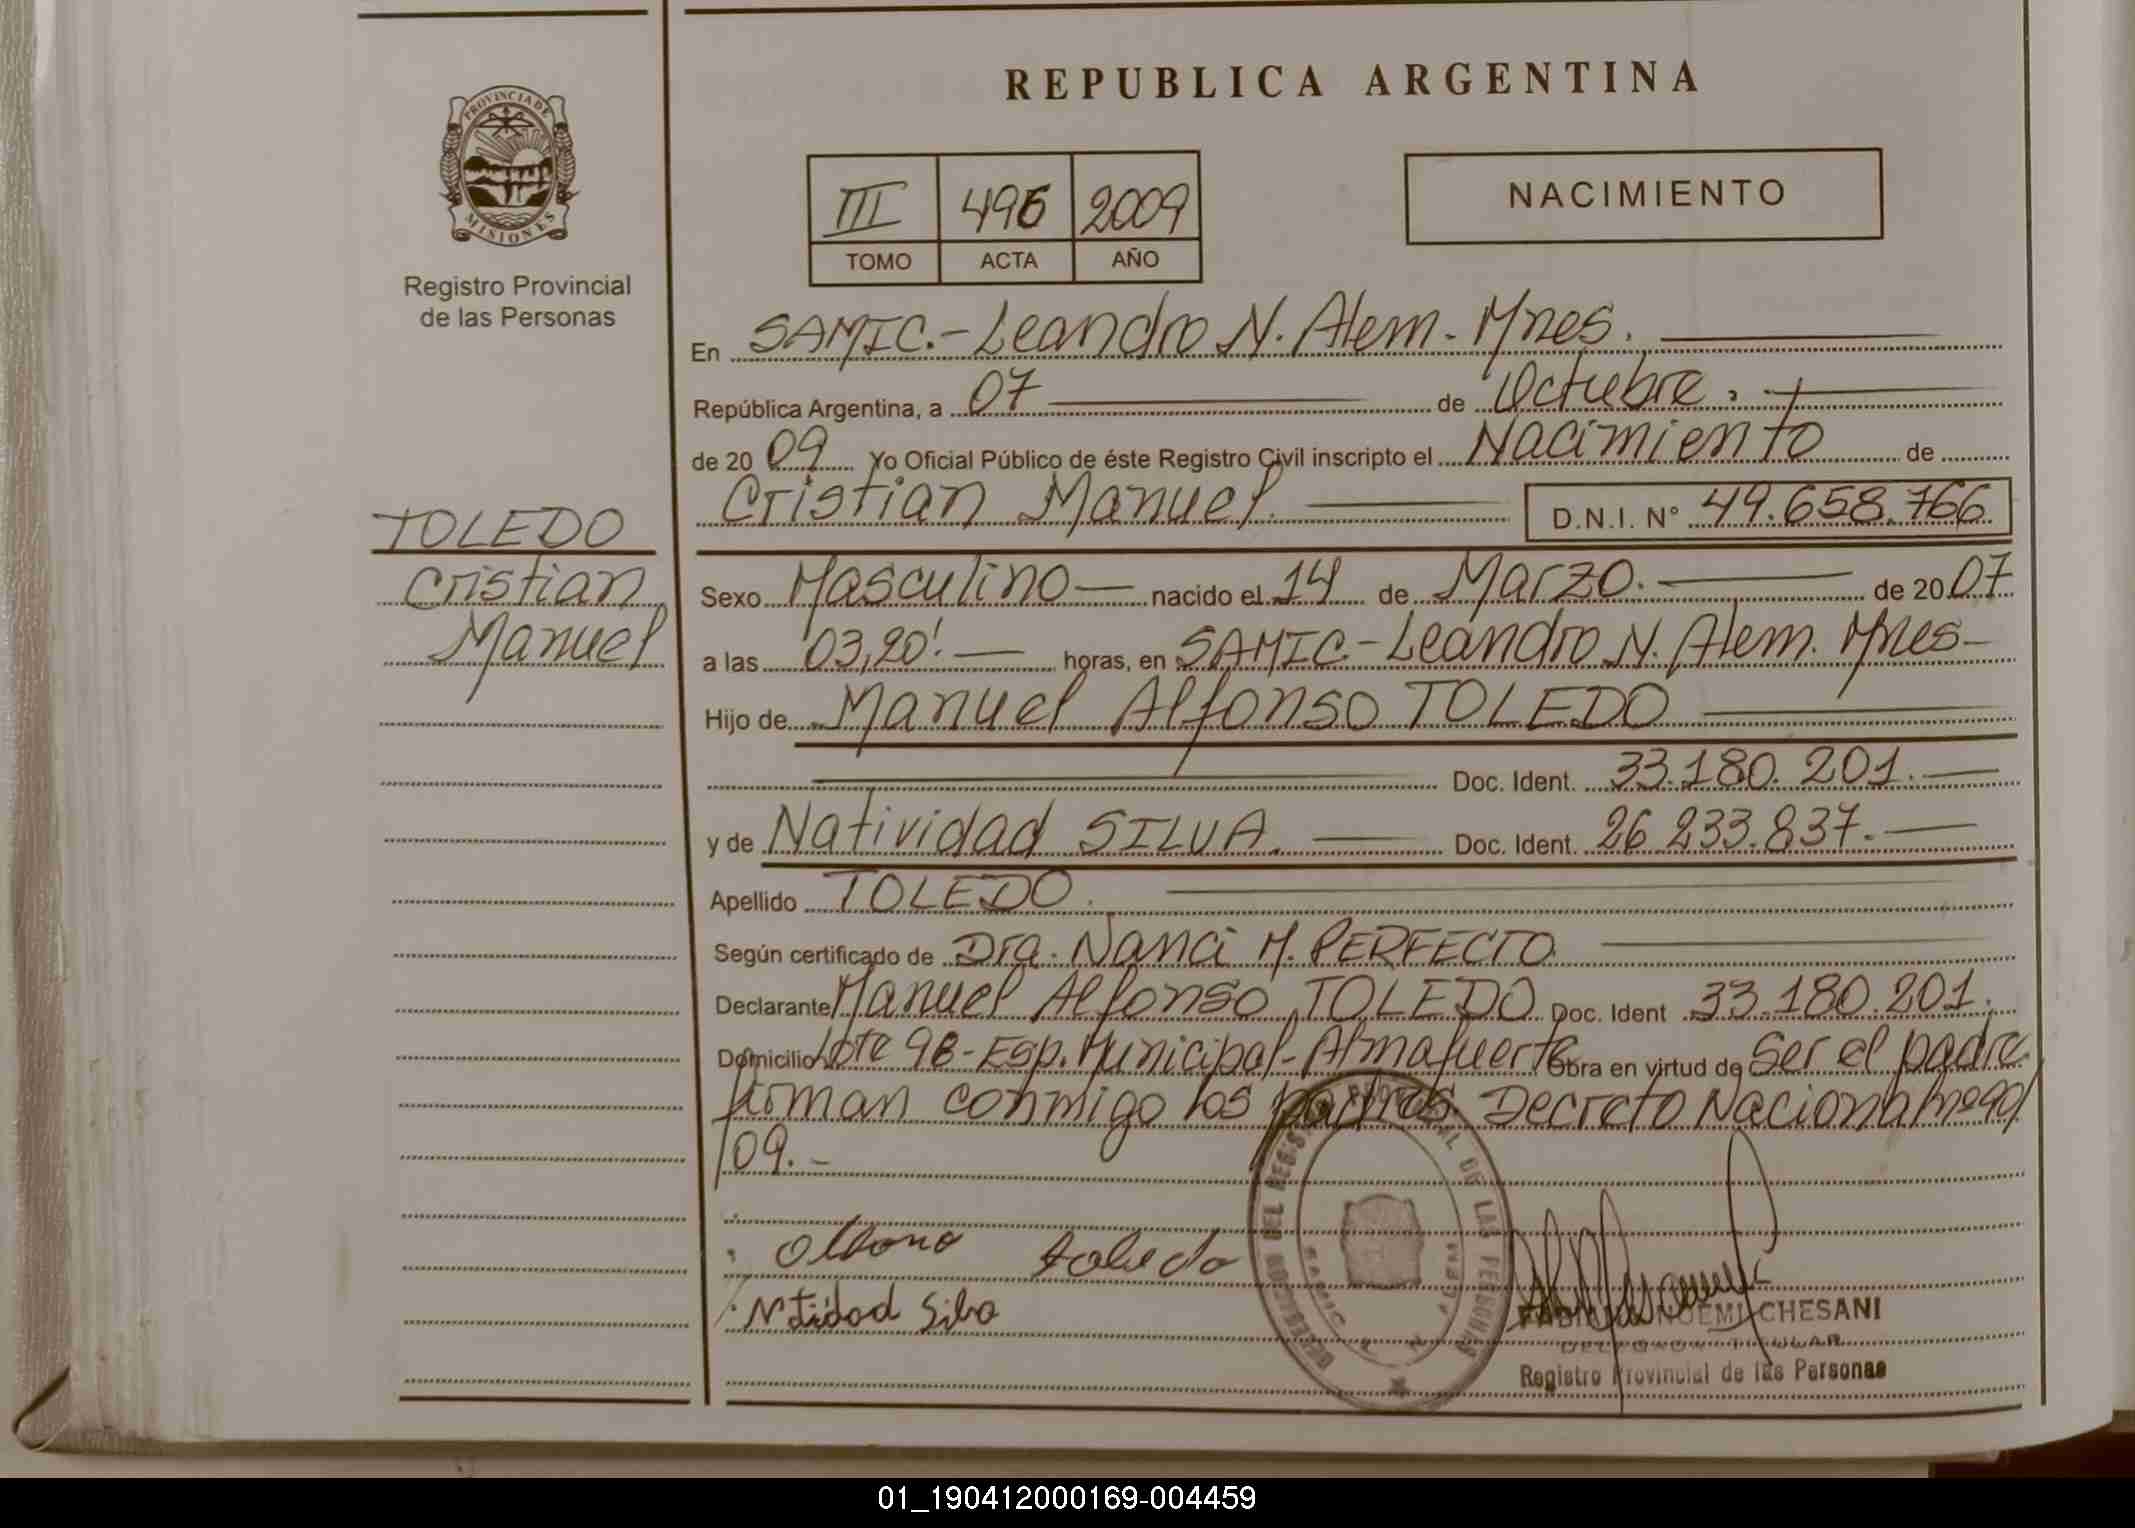 REPUBLICA ARGENTINA
PROVINCIA DE
MISIONES
Registro Provincial
de las Personas
III 496 2009
TOMO ACTA AÑO
NACIMIENTO
En SAMIC.- Leandro N. Alem - Mnes.
República Argentina, a 07 de Octubre.
de 20 09 Yo Oficial Público de éste Registro Civil inscripto el Nacimiento de
Cristian Manuel. D.N.I. Nº 49.658.766
TOLEDO
Cristian
Manuel
Sexo Masculino nacido el 14 de Marzo. de 20 07
a las 03,20'. horas, en SAMIC.- Leandro N. Alem. Mnes-
Hijo de Manuel Alfonso TOLEDO
Doc. Ident. 33.180.201.
y de Natividad SILVA. Doc. Ident. 26.233.837.
Apellido TOLEDO.
Según certificado de Dra. Nanci M. PERFECTO
Declarante Manuel Alfonso TOLEDO Doc. Ident 33.180.201.
Domicilio Lote 98 - Esp. Municipal - Almafuerte Obra en virtud de Ser el padre
firman conmigo los padres. Decreto Nacional nº 90/
/09.-
toledo
Silva
NOEMI CHESANI
Registro Provincial de las Personas
01_190412000169-004459